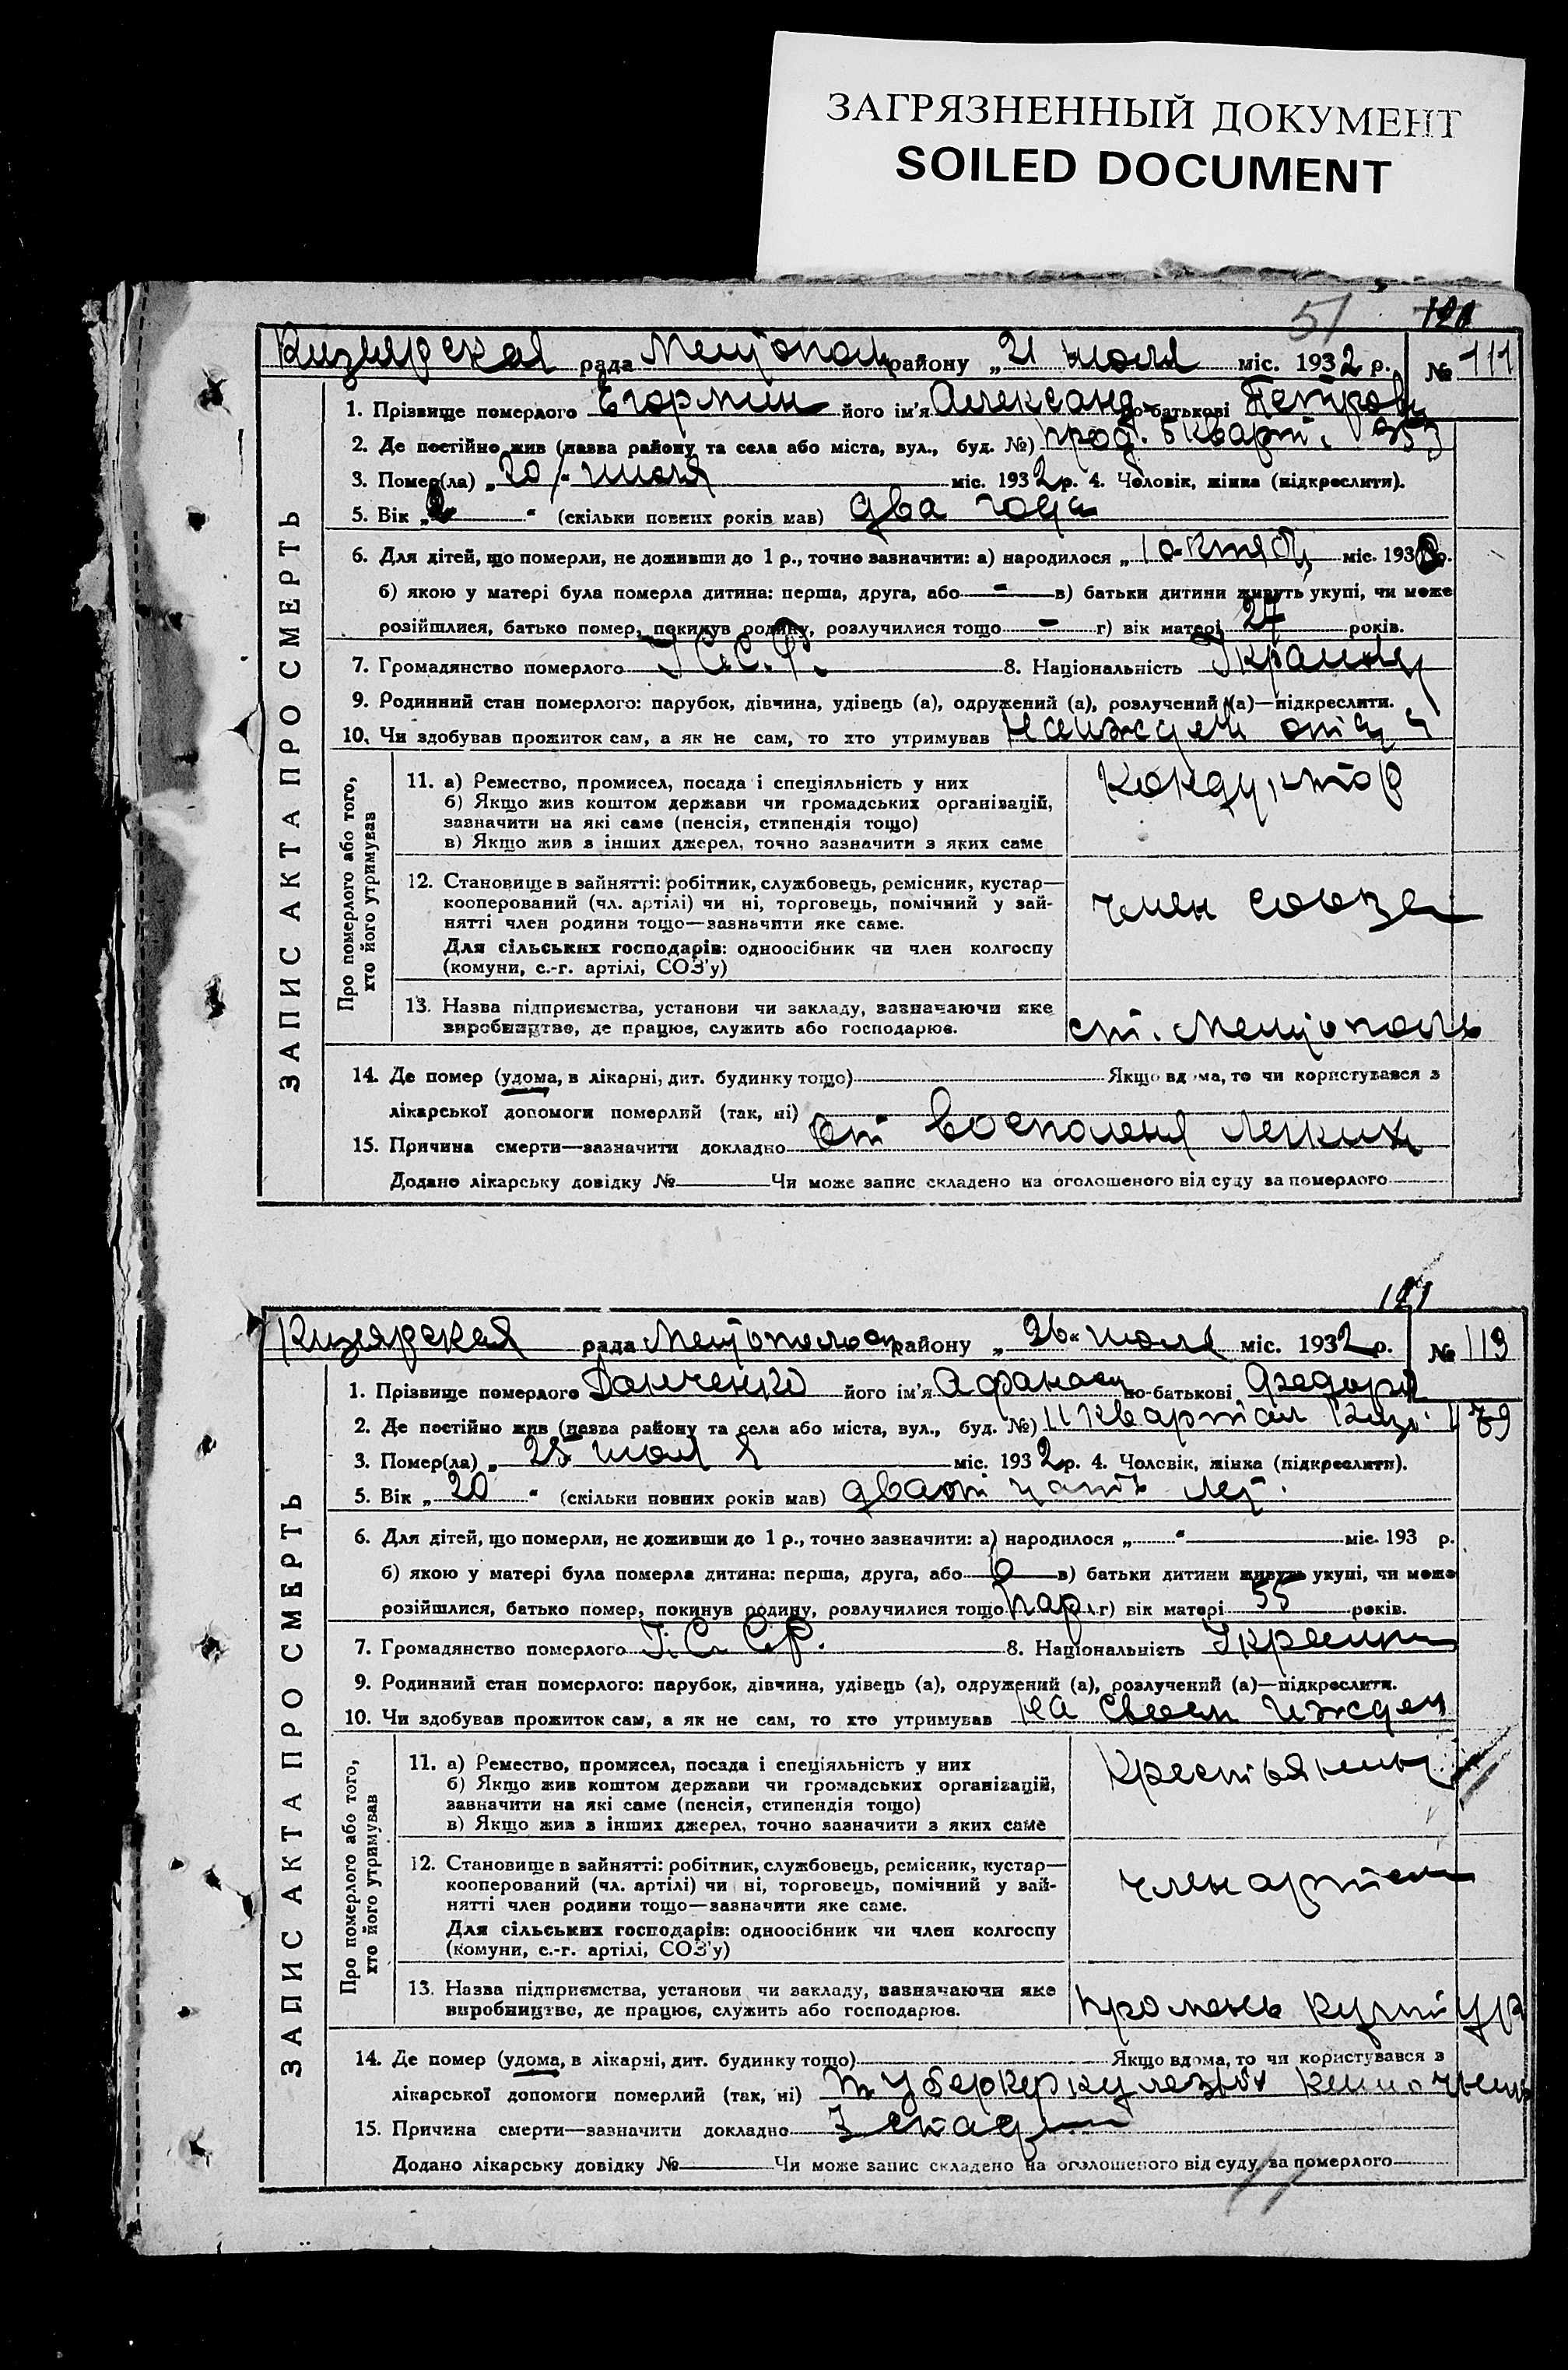 ЗАГРЯЗНЕННЫЙ ДОКУМЕНТ
SOILED DOCUMENT
51
121
Кизиярская рада Мелітопол району „21 июля міс. 1932 р. № 111
1. Прізвище померлого його ім'я Александ по-батькові Петров
2. Де постійно жив (назва району та села або міста, вул., буд. №) прод. 5 кварт. 353
3. Помер(ла) „20" июля міс. 1932 р. 4. Чоловік, жінка (підкреслити).
5. Вік „2" (скільки повних років мав) два года
6. Для дітей, що померли, не доживши до 1 р., точно зазначити: а) народилося „1 октяб міс. 1930 р.
б) якою у матері була померла дитина: перша, друга, або - в) батьки дитини живуть укупі, чи може
розійшлися, батько помер, покинув родину, розлучилися тощо - г) вік матері 27 років.
7. Громадянство померлого У.С.С.Р. 8. Національність Украинец
9. Родинний стан померлого: парубок, дівчина, удівець (а), одружений (а), розлучений (а)—підкреслити.
10. Чи здобував прожиток сам, а як не сам, то хто утримував На иждев отца
ЗАПИС АКТА ПРО СМЕРТЬ
Про померлого або того, хто його утримував
11. а) Ремество, промисел, посада і спеціяльність у них
б) Якщо жив коштом держави чи громадських організацій,
зазначити на які саме (пенсія, стипендія тощо)
в) Якщо жив з інших джерел, точно зазначити з яких саме
Кондуктор
12. Становище в зайнятті: робітник, службовець, ремісник, кустар—
кооперований (чл. артілі) чи ні, торговець, помічний у зай-
нятті член родини тощо—зазначити яке саме.
Для сільських господарів: одноосібник чи член колгоспу
(комуни, с.-г. артілі, СОЗ'у)
член союза
13. Назва підприємства, установи чи закладу, зазначаючи яке
виробництво, де працює, служить або господарює.
ст. Мелітополь
14. Де помер (удома, в лікарні, дит. будинку тощо) Якщо вдома, то чи користувався з
лікарської допомоги померлий (так, ні)
15. Причина смерти—зазначити докладно От восполеня легких
Додано лікарську довідку № Чи може запис складено на оголошеного від суду за померлого
Кизиярская рада Мелітопольск району „26" июля міс. 1932 р. № 113
1. Прізвище померлого його ім'я Афанаси по-батькові Федоро
2. Де постійно жив (назва району та села або міста, вул., буд. №) 11 квартал Кизи. 79
3. Помер(ла) „25 июля міс. 1932 р. 4. Чоловік, жінка (підкреслити).
5. Вік „20" (скільки повних років мав) двадцать лет.
6. Для дітей, що померли, не доживши до 1 р., точно зазначити: а) народилося „ " міс. 193 р.
б) якою у матері була померла дитина: перша, друга, або в) батьки дитини живуть укупі, чи може
розійшлися, батько помер, покинув родину, розлучилися тощо г) вік матері 55 років.
7. Громадянство померлого У.С.С.Р. 8. Національність Украин
9. Родинний стан померлого: парубок, дівчина, удівець (а), одружений (а), розлучений (а)—підкреслити.
10. Чи здобував прожиток сам, а як не сам, то хто утримував на своем иждев
ЗАПИС АКТА ПРО СМЕРТЬ
Про померлого або того, хто його утримував
11. а) Ремество, промисел, посада і спеціяльність у них
б) Якщо жив коштом держави чи громадських організацій,
зазначити на які саме (пенсія, стипендія тощо)
в) Якщо жив з інших джерел, точно зазначити з яких саме
Крестьянин
12. Становище в зайнятті: робітник, службовець, ремісник, кустар—
кооперований (чл. артілі) чи ні, торговець, помічний у зай-
нятті член родини тощо—зазначити яке саме.
Для сільських господарів: одноосібник чи член колгоспу
(комуни, с.-г. артілі, СОЗ'у)
член артели
13. Назва підприємства, установи чи закладу, зазначаючи яке
виробництво, де працює, служить або господарює.
промень культур
14. Де помер (удома, в лікарні, дит. будинку тощо) Якщо вдома, то чи користувався з
лікарської допомоги померлий (так, ні)
15. Причина смерти—зазначити докладно 3 стади
Додано лікарську довідку № Чи може запис складено на оголошеного від суду за померлого